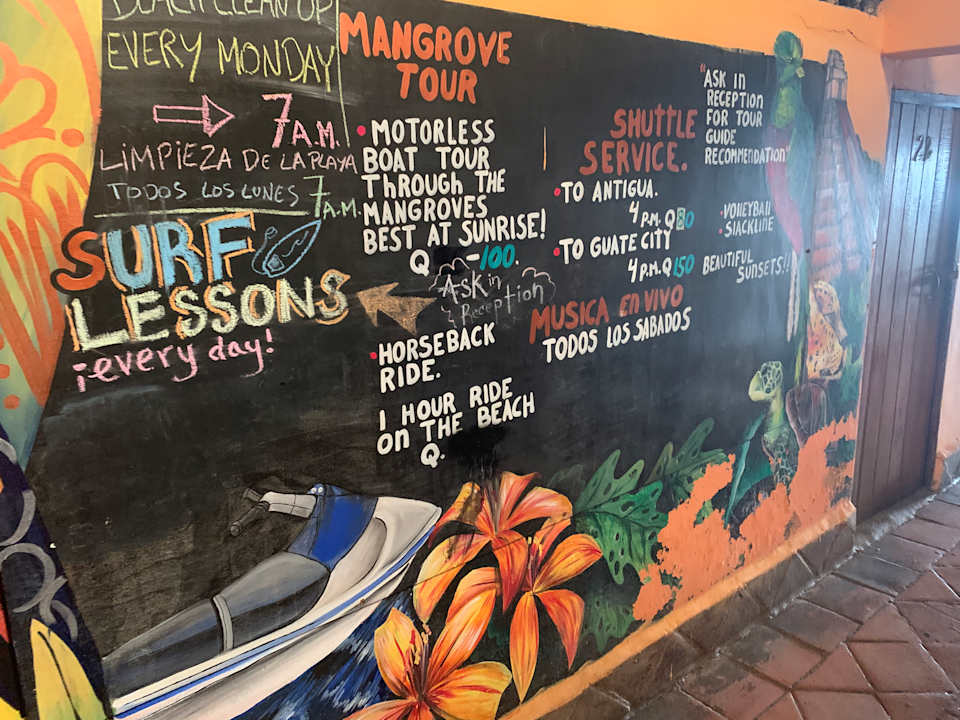 BEACH CLEAN UP
EVERY MONDAY
7 A.M.
LIMPIEZA DE LA PLAYA
TODOS LOS LUNES 7 A.M.
SURF
LESSONS
¡every day!
MANGROVE
TOUR
• MOTORLESS
BOAT TOUR
Through THE
MANGROVES
BEST AT SUNRISE!
Q -100.
Ask in
Reception
• HORSEBACK
RIDE.
1 HOUR RIDE
on THE BEACH
Q.
SHUTTLE
SERVICE.
• TO ANTIGUA.
4 P.M. Q 80
• TO GUATE CITY
4 P.M. Q 150
MUSICA en VIVO
TODOS LOS SABADOS
"ASK in
RECEPTION
FOR TOUR
GUIDE
RECOMMENDATION"
• VOLLEYBALL
• SLACKLINE
BEAUTIFUL
SUNSETS!!